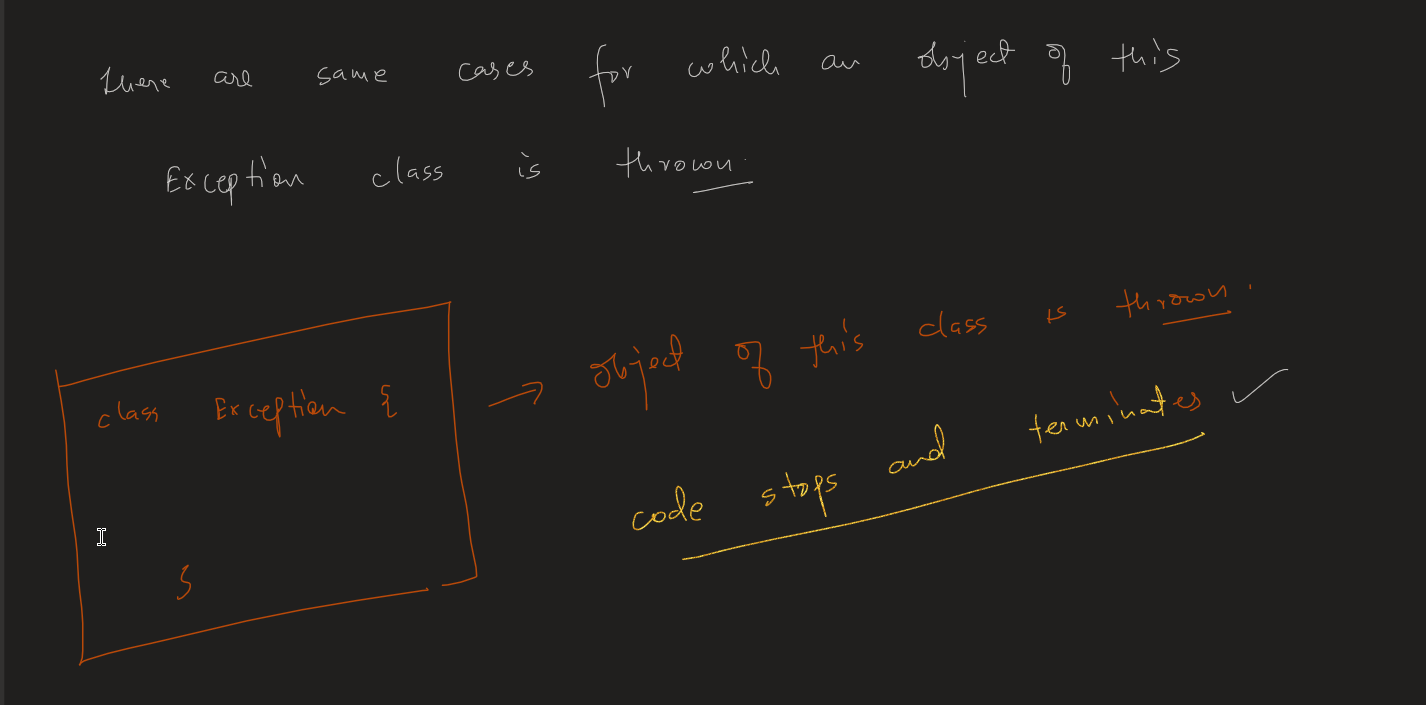 there are same cases for which an object of this
Exception class is thrown.
class Exception {
}
object of this class is thrown.
code stops and terminates